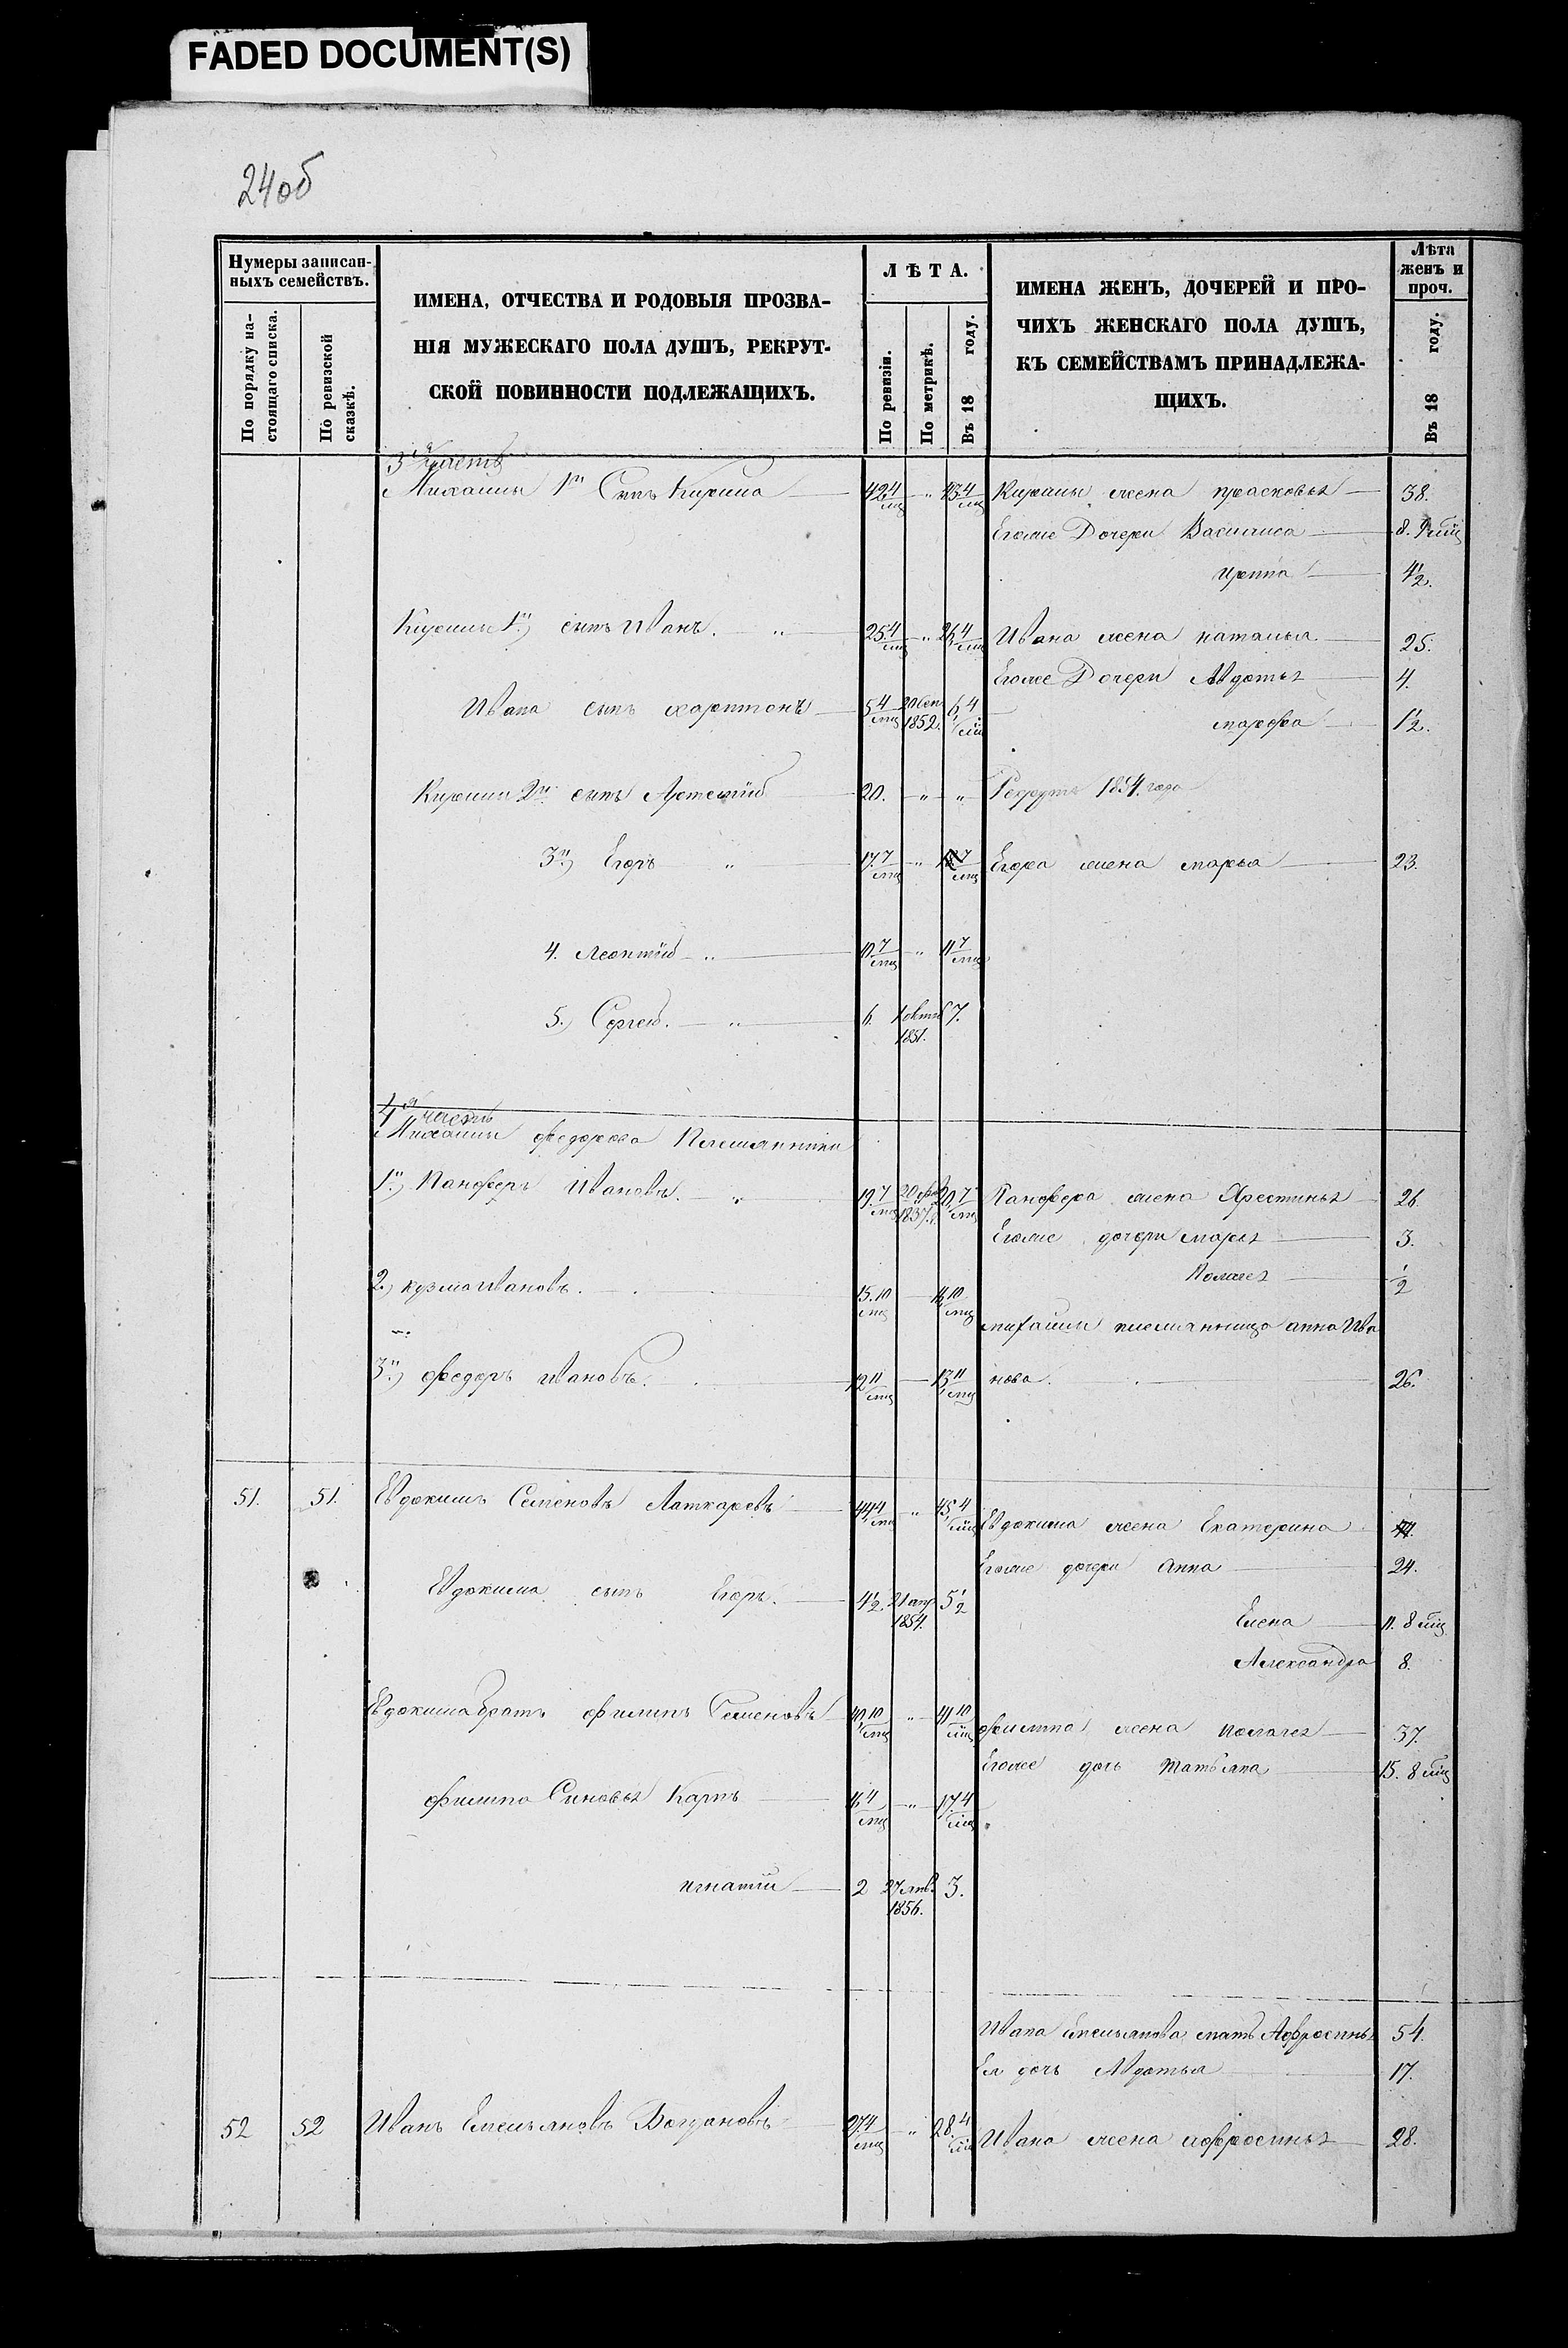 FADED DOCUMENT(S)
24об
Нумеры записан-
ныхъ семействъ.
По порядку на-
стоящаго списка.
По ревизской
сказкѣ.
ИМЕНА, ОТЧЕСТВА И РОДОВЫЯ ПРОЗВА-
НІЯ МУЖЕСКАГО ПОЛА ДУШЪ, РЕКРУТ-
СКОЙ ПОВИННОСТИ ПОДЛЕЖАЩИХЪ.
ЛѢТА.
По ревизіи.
По метрикѣ.
Въ 18 году.
ИМЕНА ЖЕНЪ, ДОЧЕРЕЙ И ПРО-
ЧИХЪ ЖЕНСКАГО ПОЛА ДУШЪ,
КЪ СЕМЕЙСТВАМЪ ПРИНАДЛЕЖА-
ЩИХЪ.
Лѣта
женъ и
проч.
Въ 18 году.
3я часть
Михаилы 1й Сынъ Кирила 42 4/мц " 43 4/мц Кирилы жена прасковья 38.
Егоже Дочери Василиса 8.
ирина 4 1/2.
Кирилы 1й) сынъ Иванъ. " 25. 4/мц " 26 4/мц Ивана жена наталья. 25.
Егоже Дочери Авдотья 4.
Ивана сынъ харитонъ 5 4/мц 20 Сен 1852. 6 4/мц
марфа 1 1/2.
Кирилы 2й сынъ Артемій 20. " " Рекрутъ 1854. года
3й) Егоръ " 17. 7/мц " 18 7/мц Егора жена марья 23.
4. Леонтій " 10 7/мц " 11 7/мц
5.) Сергей. " 6. 1 октяб 1851. 7.
4я часть
Михаилы федорова Племянники
1й) Панферъ Ивановъ. " 19. 7/мц 20 фев 1837. 20. 7/мц Панфера жена Хрестинья 26.
Егоже дочери марья 3.
Полагея 1/2
2.) кузма Ивановъ. 15. 10/мц 16 10/мц
михаилы племянница анна Ива
3й) федоръ Ивановъ. 12 11/мц 13 11/мц нова. 26.
51. 51. Евдокимъ Семеновъ Латкаревъ 44 4/мц " 45 4/мц
Евдокима жена Екатерина
Егоже дочери Анна 24.
Евдокима сынъ Егоръ. 4 1/2. 21 апр 1854. 5 1/2
Елена 11. 8 мц
Александра 8.
Евдокима братъ филипъ Семеновъ 40 10/мц " 41 10/мц
филипа жена полагея 37.
Егоже дочь Татьяна 15. 8 мц
филипа Сыновья Карпъ 16 4/мц " 17. 4/мц
игнатій 2 27 янв. 1856. 3.
Ивана Емельянова мать Афросинья 54.
Ея дочь Авдотья 17.
52 52 Иванъ Емельяновъ Богдановъ 27. 4/мц " 28. 4/мц Ивана жена афросинья 28.